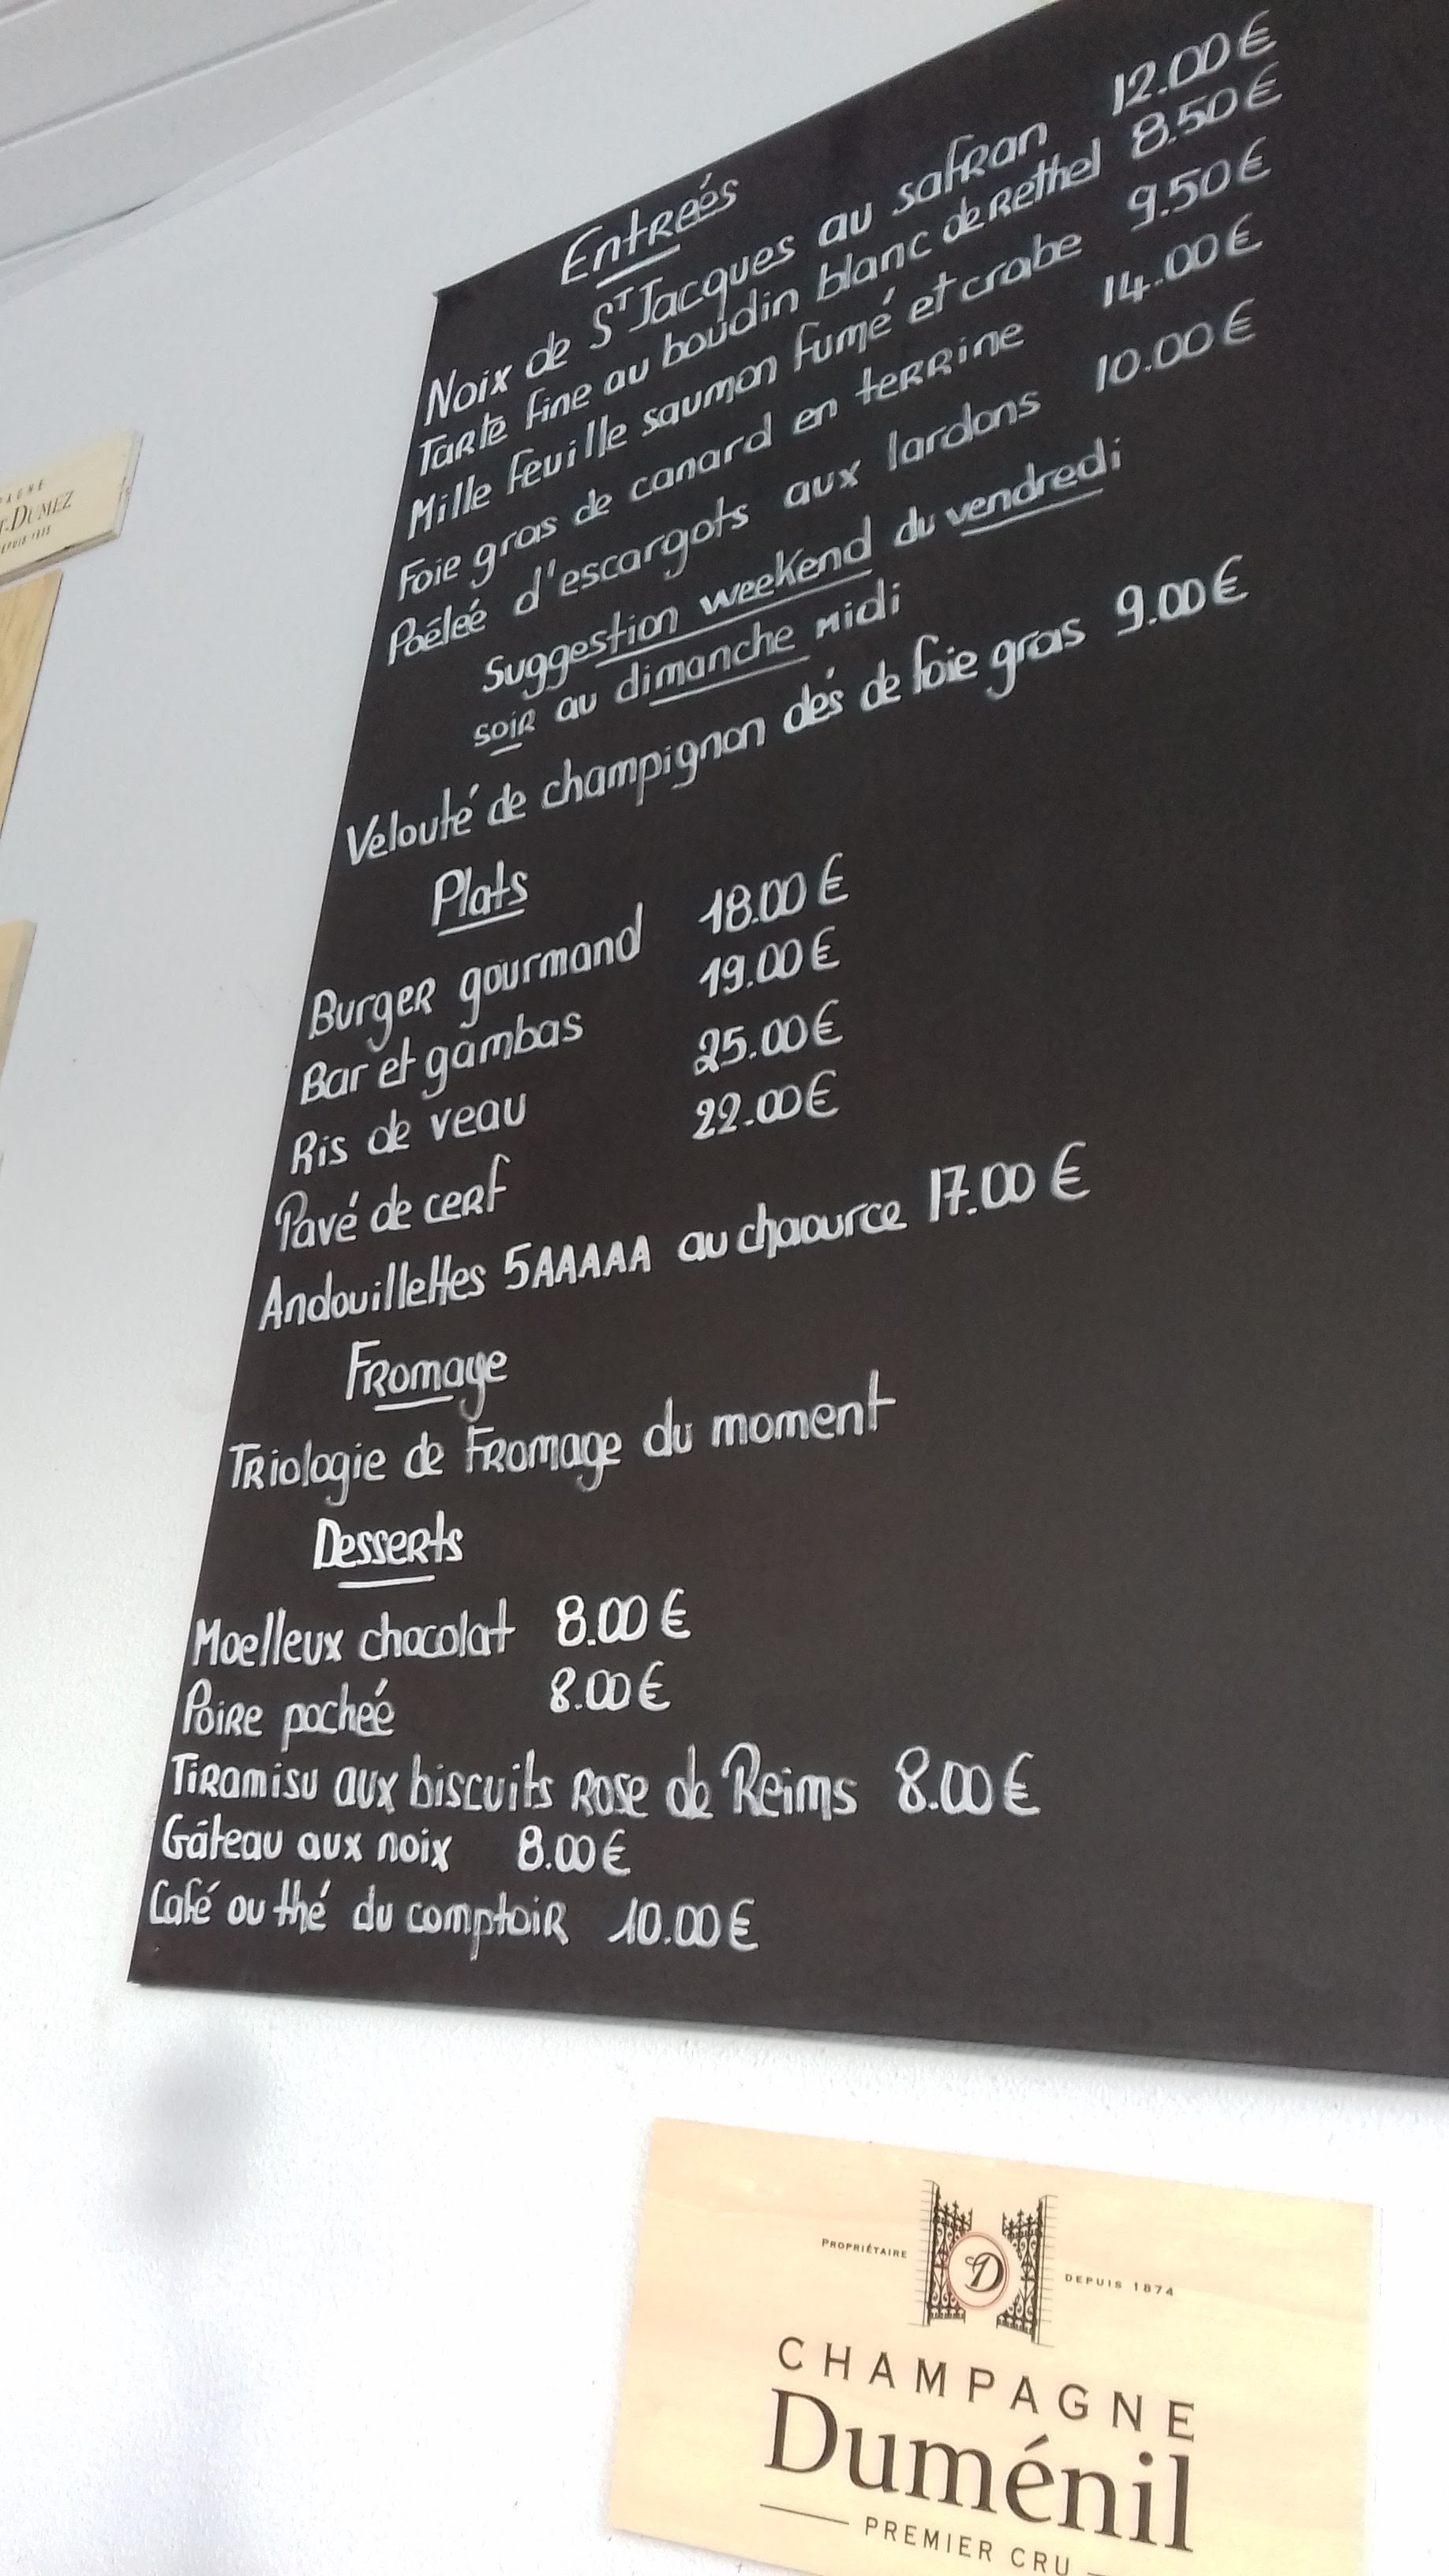 Entreés
Noix de St Jacques au safran 12.00€
Tarte fine au boudin blanc de Rethel 8.50€
Mille feuille saumon fumé et crabe 9.50€
Foie gras de canard en terrine 14.00€
Poéleé d'escargots aux lardons 10.00€
Suggestion weekend du vendredi
soir au dimanche midi
Velouté de champignon dés de foie gras 9.00€
Plats
Burger gourmand 18.00€
Bar et gambas 19.00€
Ris de veau 25.00€
Pavé de cerf 22.00€
Andouillettes 5AAAAA au chaource 17.00€
Fromage
Triologie de Fromage du moment
Desserts
Moelleux chocolat 8.00€
Poire pocheé 8.00€
Tiramisu aux biscuits Rose de Reims 8.00€
Gáteau aux noix 8.00€
Café ou thé du comptoir 10.00€
DUMEZ
PROPRIÉTAIRE D DEPUIS 1874
CHAMPAGNE
Duménil
PREMIER CRU